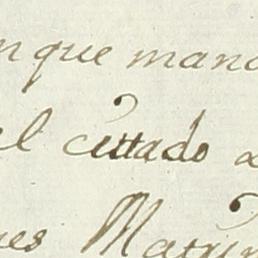 n que mand
el cittado a
es Matrim